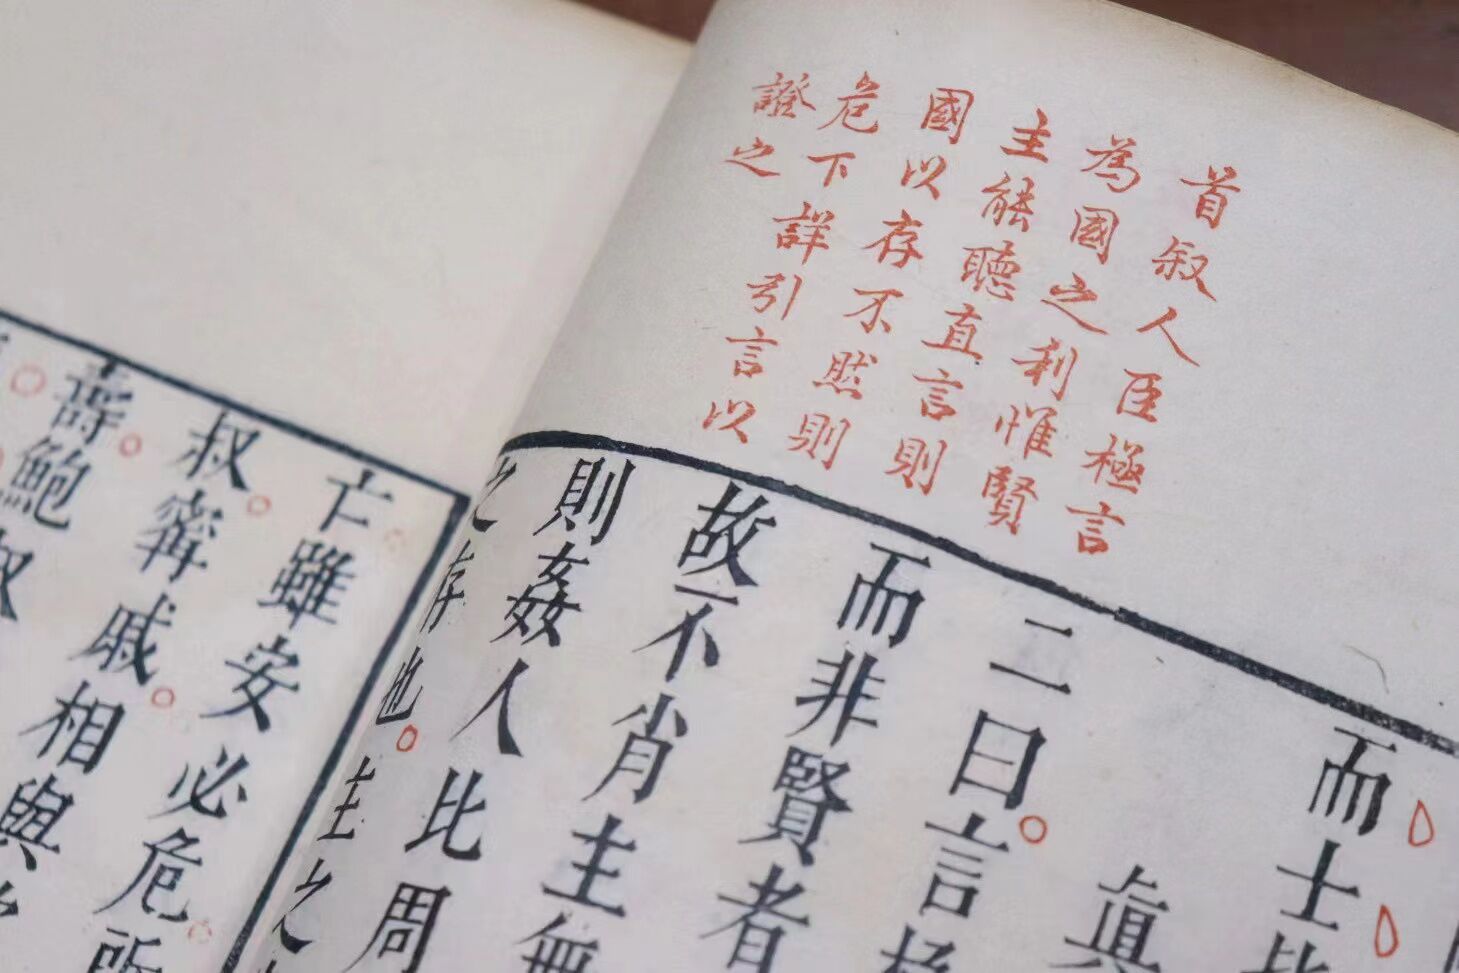 首叙人臣極言
為國之利惟賢
主能聽直言則
國以存不然則
危下詳引言以
證之
而士
真
二曰言極
而非賢者
故不肖主無
則姦人比周
之存也主之
亡雖安必危所
叔甯戚相與
壽鮑叔